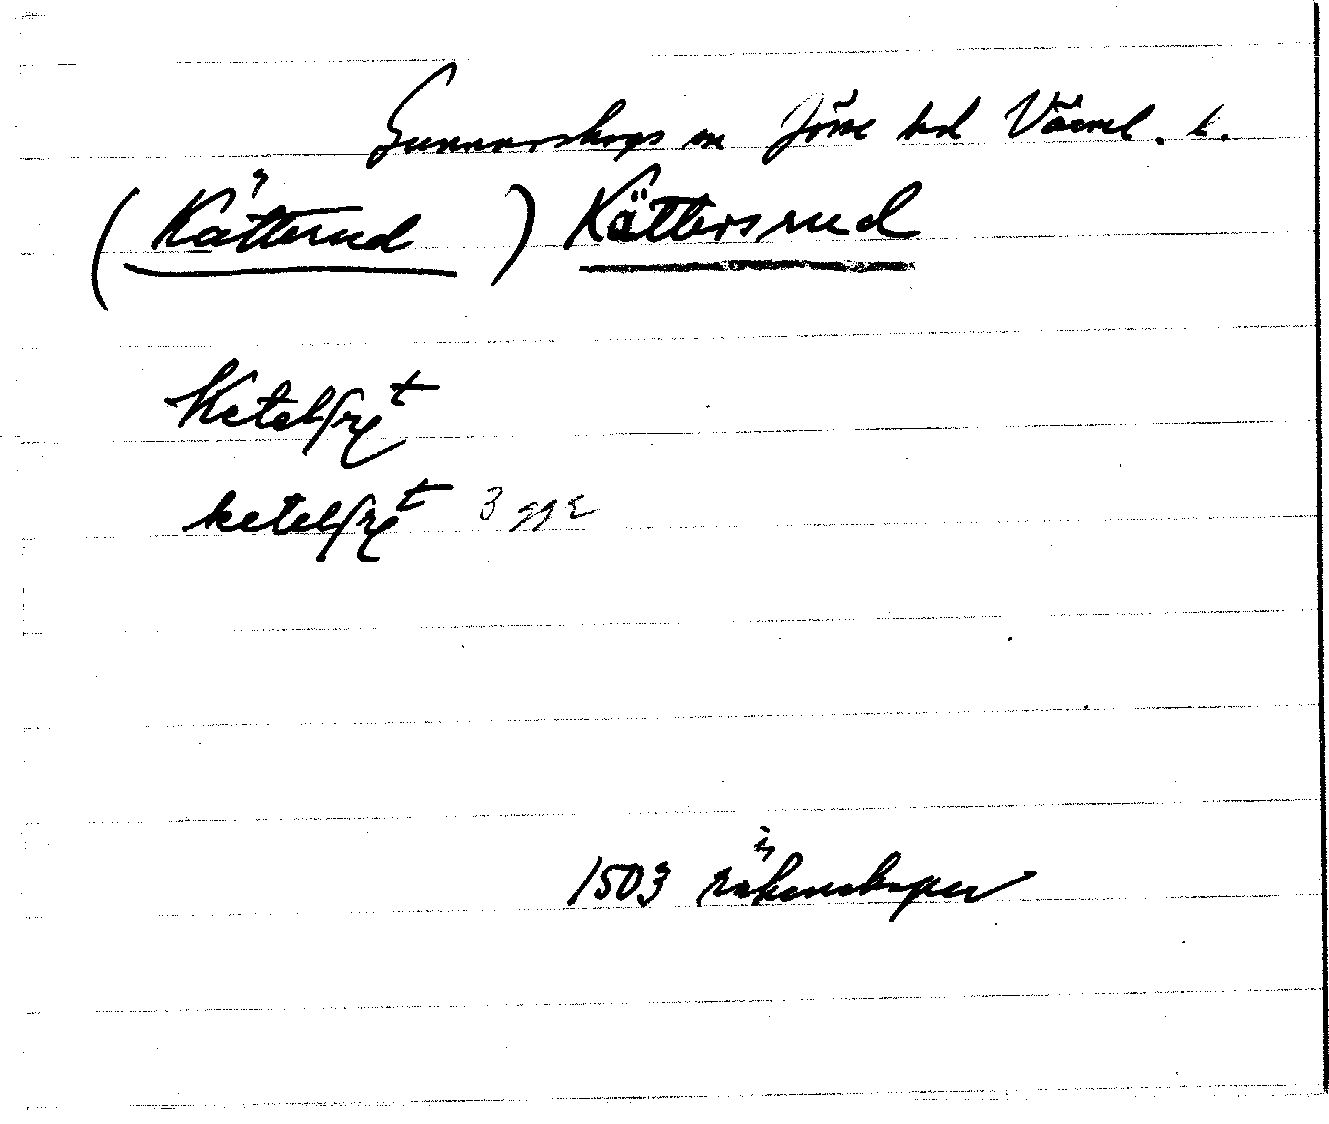 Gunnarskogs sn Jösse hd Värml. l.
(Kätterud) Kättersrud
Ketelsryt
ketelsryt 3 ggr
1503 räkenskaper